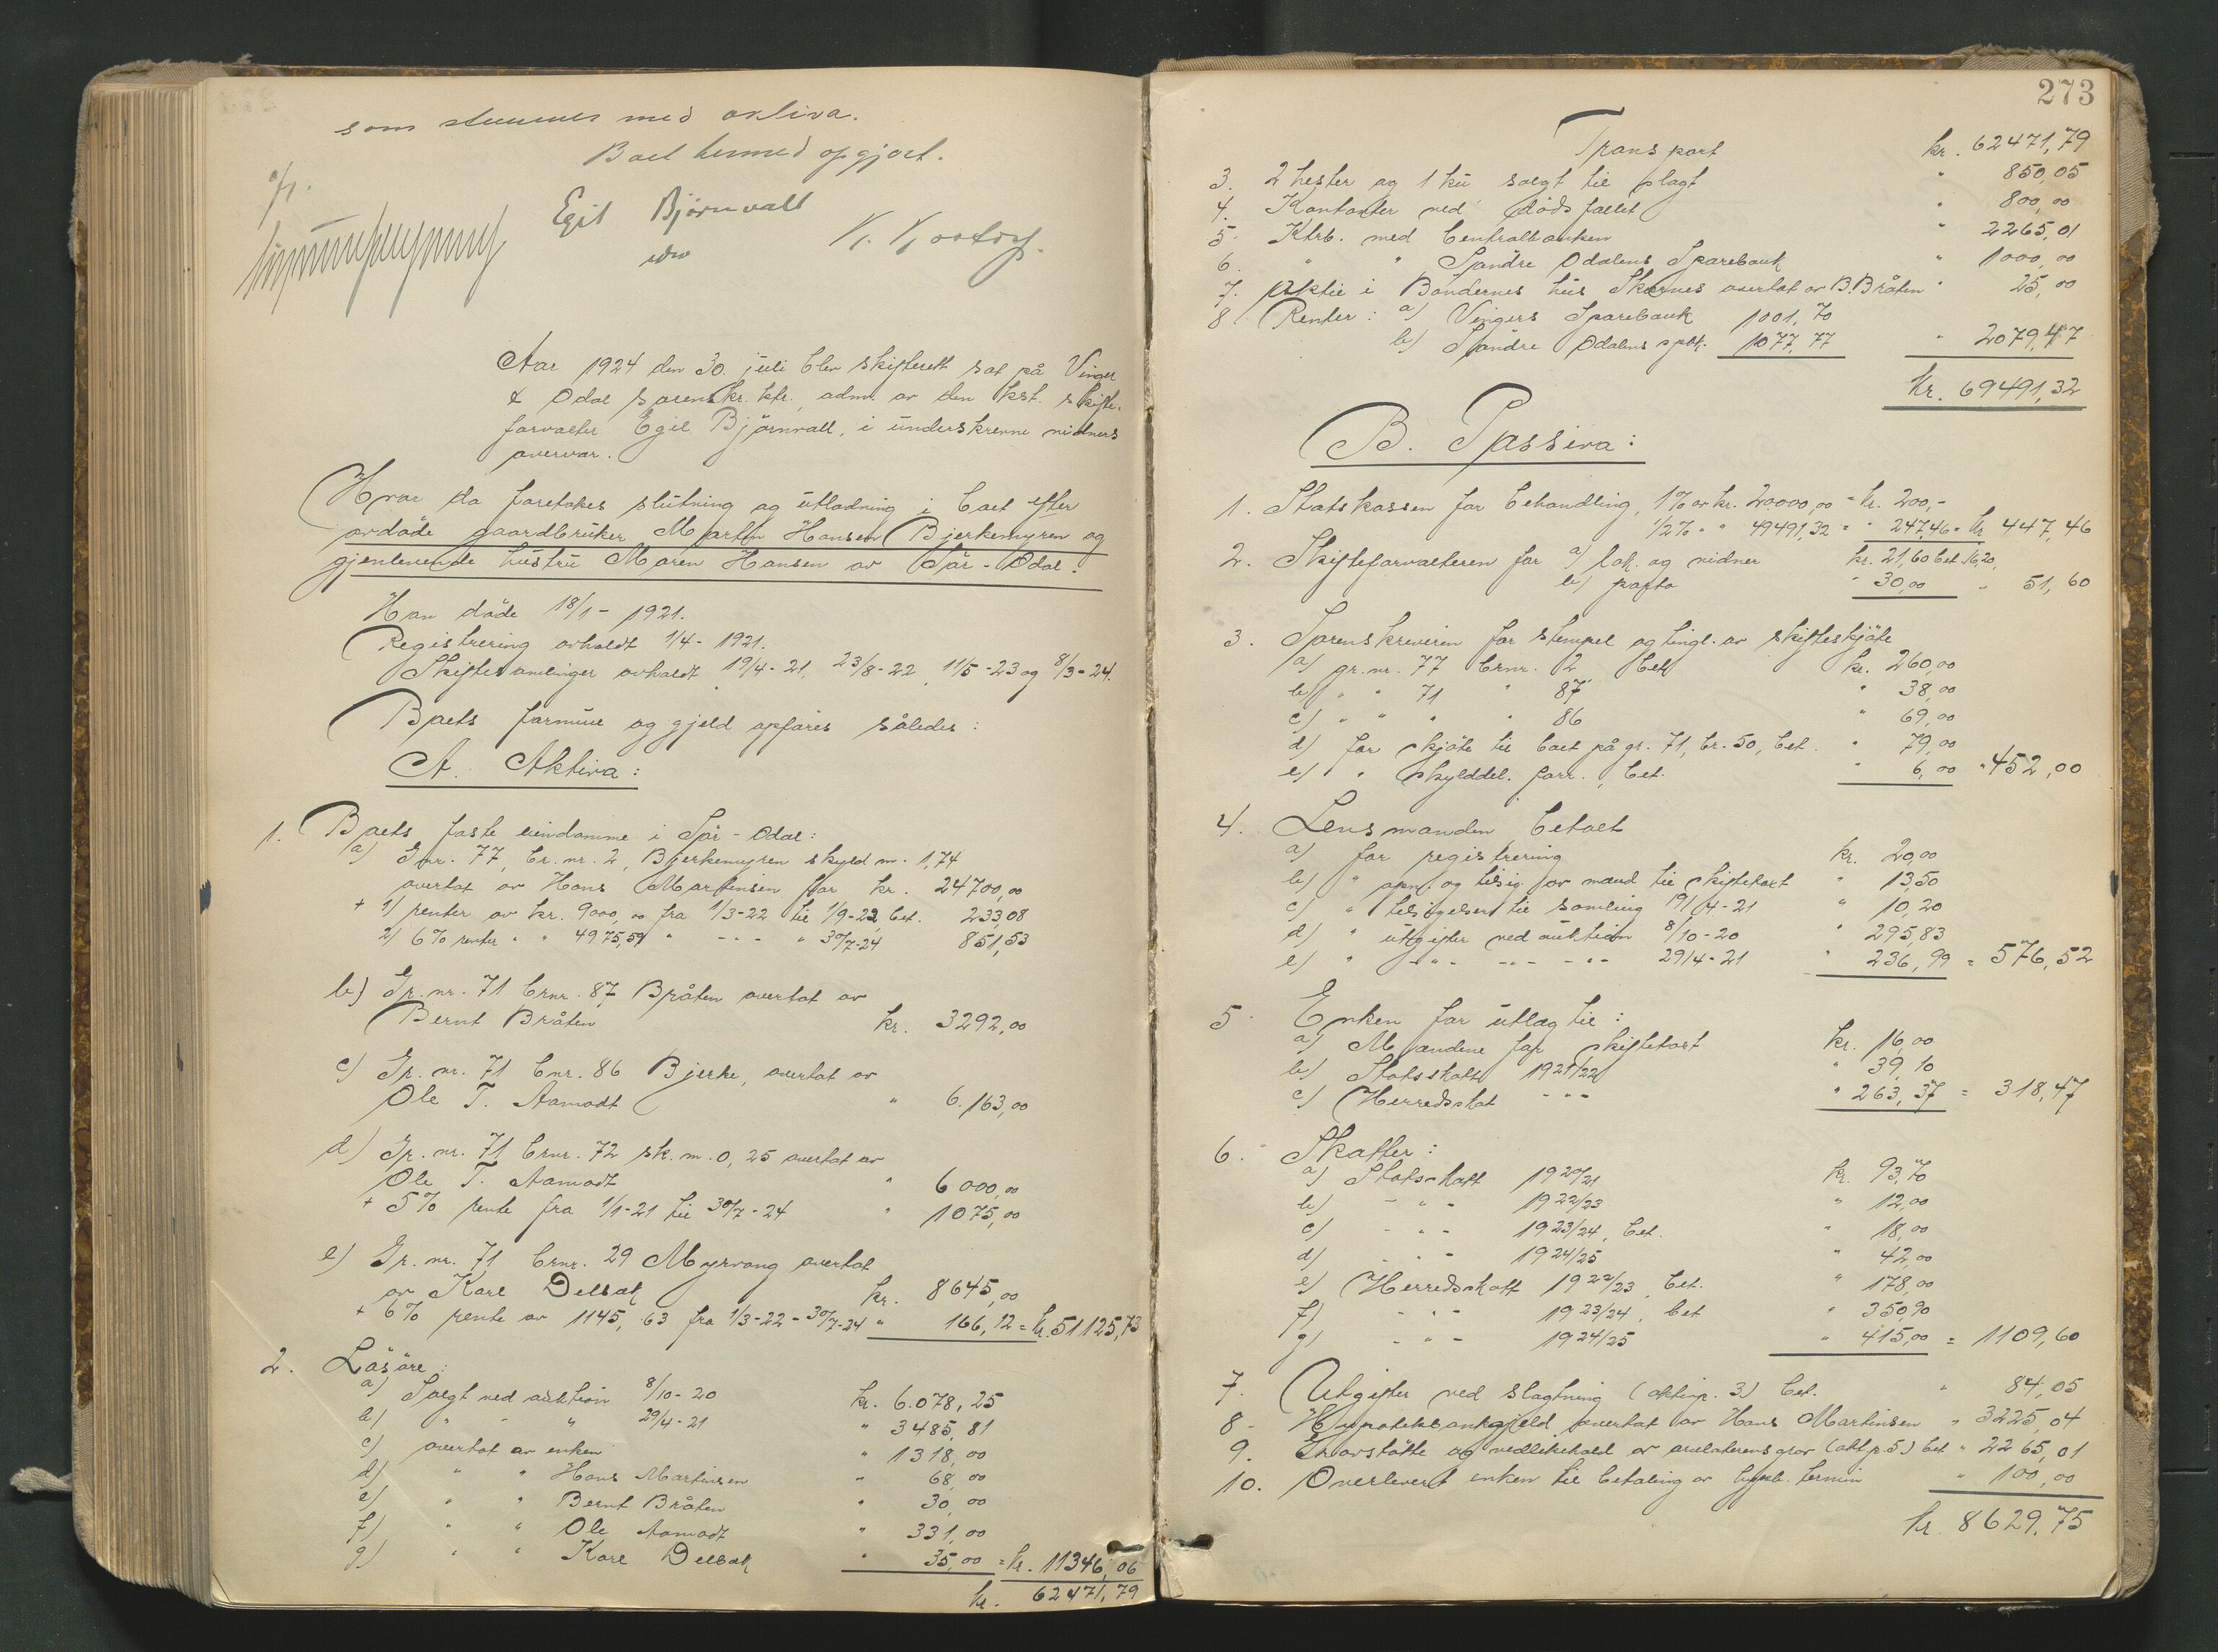 som stemmer med aktiva.
Boet hermed opgjort.
Egil Bjørnvall
edv
Aar 1924 den 30. juli blev skifterett sat på Vinger
& Odal sorenskr. ktr., adm. av den kst. skifte-
forvalter Egil Björnvall, i underskrevne vidners
overvær.
Hvor da foretokes slutning og utlodning i boet efter
avdöde gaardbruker Martin Hansen Bjerkemyren og
gjenlevende hustru Maren Hansen av Sör-Odal.
Han döde 18/1- 1921.
Registrering avholdt 1/4- 1921.
Skiftesamlinger avholdt 19/4-21, 23/8-22, 11/5-23 og 8/3-24.
Boets formue og gjeld opföres således:
A. Aktiva:
1. Boets faste eiendomme i Sör-Odal:
a) Gnr. 77, br.nr. 2, Bjerkemyren skyld m. 1,74
overtat av Hans Martinsen for kr. 24700,00
+ 1) renter av kr. 9000,00 fra 1/3-22 til 1/9-22, bet. 233,08
2) 6% renter " " 4975,59 " - - - " 30/7-24 851,53
b) Gr.nr. 71 brnr. 87 Bråten overtat av
Bernt Bråten kr. 3292,00
c) Gr.nr. 71 bnr. 86 Bjerke, overtat av
Ole T. Aamodt " 6.163,00
d) Gr.nr. 71 brnr. 72 sk.m. 0,25 overtat av
Ole T. Aamodt " 6000,00
+ 5% rente fra 1/1-21 til 30/7-24 " 1075,00
e) Gr.nr. 71 brnr. 29 Myrvang overtat
av Kare Delbak kr. 8645,00
+ 6% rente av 1145,63 fra 1/3-22 - 30/7-24 " 166,12 = kr. 51125,73
2. Lösöre:
a) Solgt ved auktion 8/10-20 kr. 6.078,25
b) " - " 29/4-21 " 3485,81
c) overtat av enken " 1318,00
d) " " Hans Martinsen " 68,00
e) " " Bernt Bråten " 30,00
f) " " Ole Aamodt " 331,00
g) " " Kare Delbak " 35,00 = kr. 11346,06
kr. 62471,79
273
Transport kr. 62471,79
3. 2 hester og 1 ku solgt til slagt " 850,05
4. Kontanter ved dödsfallet " 800,00
5. Ktrb. med Centralbanken " 2265,01
6. " " Söndre Odalens Sparebank " 1000,00
7. Aktie i Böndernes hus Skarnes overtat av B. Bråten " 25,00
8. Renter: a) Vingers Sparebank 1001,70
b) Söndre Odalens spbk. 1077,77 " 2079,47
kr. 69491,32
B. Passiva:
1. Statskassen for behandling, 1% av kr. 20000,00 = kr. 200,-
1/2% " " 49491,32 = " 247,46 = kr. 447,46
2. Skifteforvalteren for a) lok. og vidner kr. 21,60 bet. 16,20
b) porto " 30,00 " 51,60
3. Sorenskriveren for stempel og tingl. av skifteskjöte
a) gr.nr. 77 brnr. 2 bet. kr. 260,00
b) " " 71 " 87 " 38,00
c) " " " " 86 " 69,00
d) for skjöte til boet på gr. 71, br. 50, bet. " 79,00
e) " skylddel. forr., bet. " 6,00 " 452,00
4. Lensmanden betalt
a) for registrering kr. 20,00
b) " opn. og tilsig. av mænd til skiftetakst " 13,50
c) " tilsigelser til samling 19/4-21 " 10,20
d) " utgifter ved auktion 8/10-20 " 295,83
e) " - " - - " - - " - 29/4-21 " 236,99 = 576,52
5. Enken for utlæg til:
a) Mændene for skiftetakst kr. 16,00
b) Statsskatt 1921/22 " 39,10
c) Herredsskat - " - " 263,37 = 318,47
6. Skatter:
a) Statsskatt 1920/21 kr. 93,70
b) - " - 1922/23 " 12,00
c) - " - 1923/24, bet. " 18,00
d) - " - 1924/25 " 42,00
e) Herredsskatt 1922/23, bet. " 178,00
f) - " - 1923/24, bet " 350,90
g) - " - 1924/25 " 415,00 = 1109,60
7. Utgifter ved slagtning (aktivp. 3) bet. " 84,05
8. Hypotekbankgjeld overtat av Hans Martinsen " 3225,04
9. Gravstötte og vedlikehold av avdödes grav (akt.p. 5) bet " 2265,01
10. Overlevert enken til betaling av hypb. termin " 100,00
kr. 8629,75